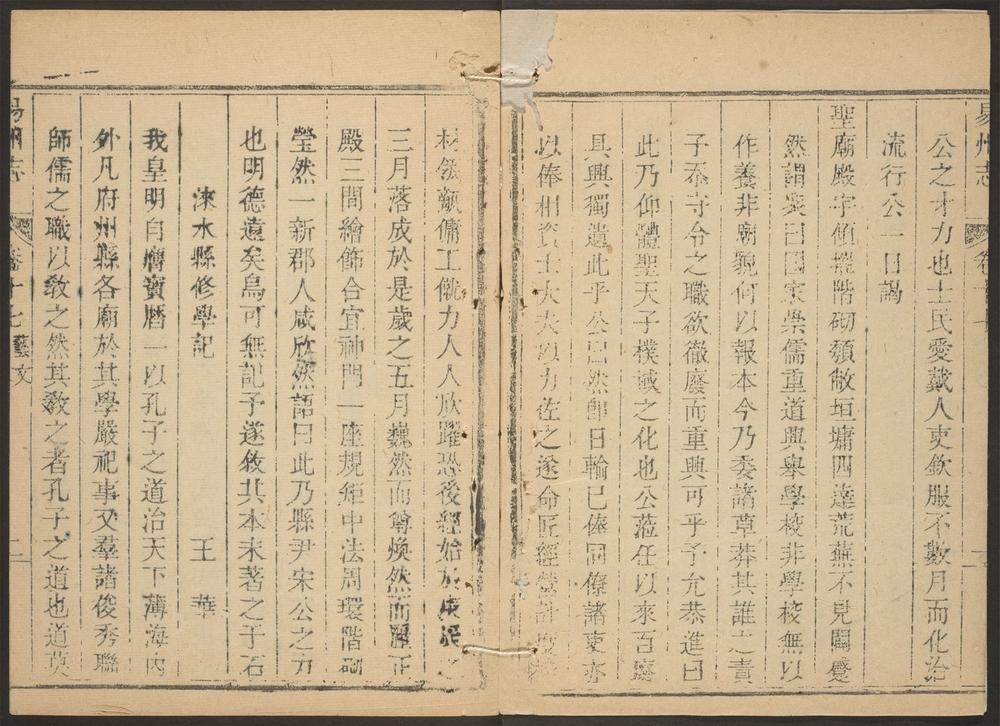 易州志 卷十七
公之才力也士民愛戴人吏欽服不數月而化治
流行公一日謁
聖廟殿宇傾摧階砌頹敝垣墉四達荒蕪不見闕
然謂衆曰國家崇儒重道興舉學校非學校無以
作養非廟貌何以報本今乃委諸草莽其誰之責
子忝守令之職欲徹廢而重興可乎予允恭進曰
此乃仰體聖天子棫之化也公蒞任以來百廢
具興獨遺此乎公曰然即日輸己俸同僚諸吏亦
以俸相資士大夫以力佐之遂命匠經營計度
材傭工僦力人人欣躍恐後經始於
三月落成於是歲之五月巍然而煥然而正
殿三間繪飾合宜神門一座規矩中法周環階砌
瑩然一新郡人咸欣然語曰此乃縣尹宋公之力
也明德遠矣烏可無記予遂敘其本末著之于石
淶水縣修學記 王華
我皇明自膺寶曆一以孔子之道治天下薄海內
外凡府州縣各廟於其學嚴祀事又羣諸俊秀聯
師儒之職以敎之然其敎之者孔子之道也道莫
易州志 卷十七 藝文 二